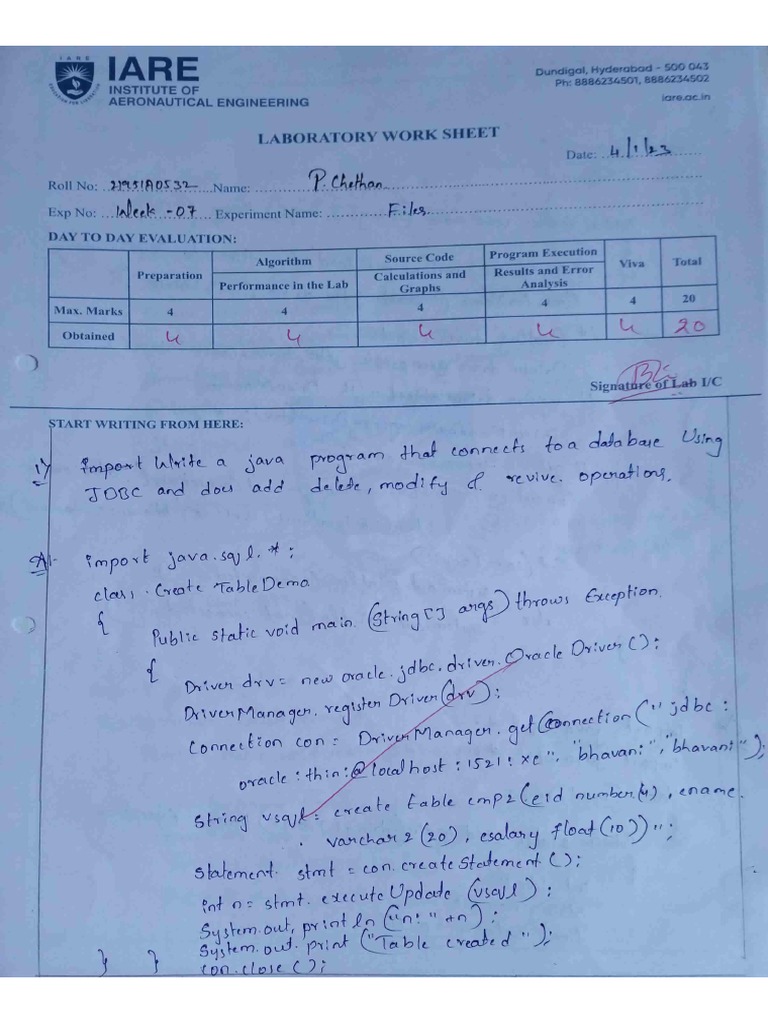 IARE
INSTITUTE OF
AERONAUTICAL ENGINEERING
Dundigal, Hyderabad - 500 043
Ph: 8886234501, 8886234502
iare.ac.in
LABORATORY WORK SHEET
Date: 4/1/23
Roll No: 21951A0532 Name: P. Chethan
Exp No: Week - 07 Experiment Name: Files
DAY TO DAY EVALUATION:
Preparation Algorithm Source Code Program Execution Viva Total
Performance in the Lab Calculations and Graphs Results and Error Analysis
Max. Marks 4 4 4 4 4 20
Obtained 4 4 4 4 4 20
Signature of Lab I/C
START WRITING FROM HERE:
1) import Write a java program that connects to a database Using
JDBC and does add delete, modify & revive operations.
A)- import java.sql.*;
class Create TableDemo
{ Public static void main (String[] args) throws Exception.
{ Driver drv = new oracle.jdbc.driver.Oracle Driver();
DriverManager.register Driver(drv);
Connection con = DriverManager.get Connection("jdbc:
oracle:thin:@localhost:1521:xe", "bhavani", "bhavani");
String vsql = create table emp2(eid number(4), ename
varchar2(20), esalary float(10))";
Statement stmt = con.createStatement();
int n = stmt.executeUpdate (vsql);
System.out.println("n:"+n);
System.out.print ("Table created");
} } con.close();